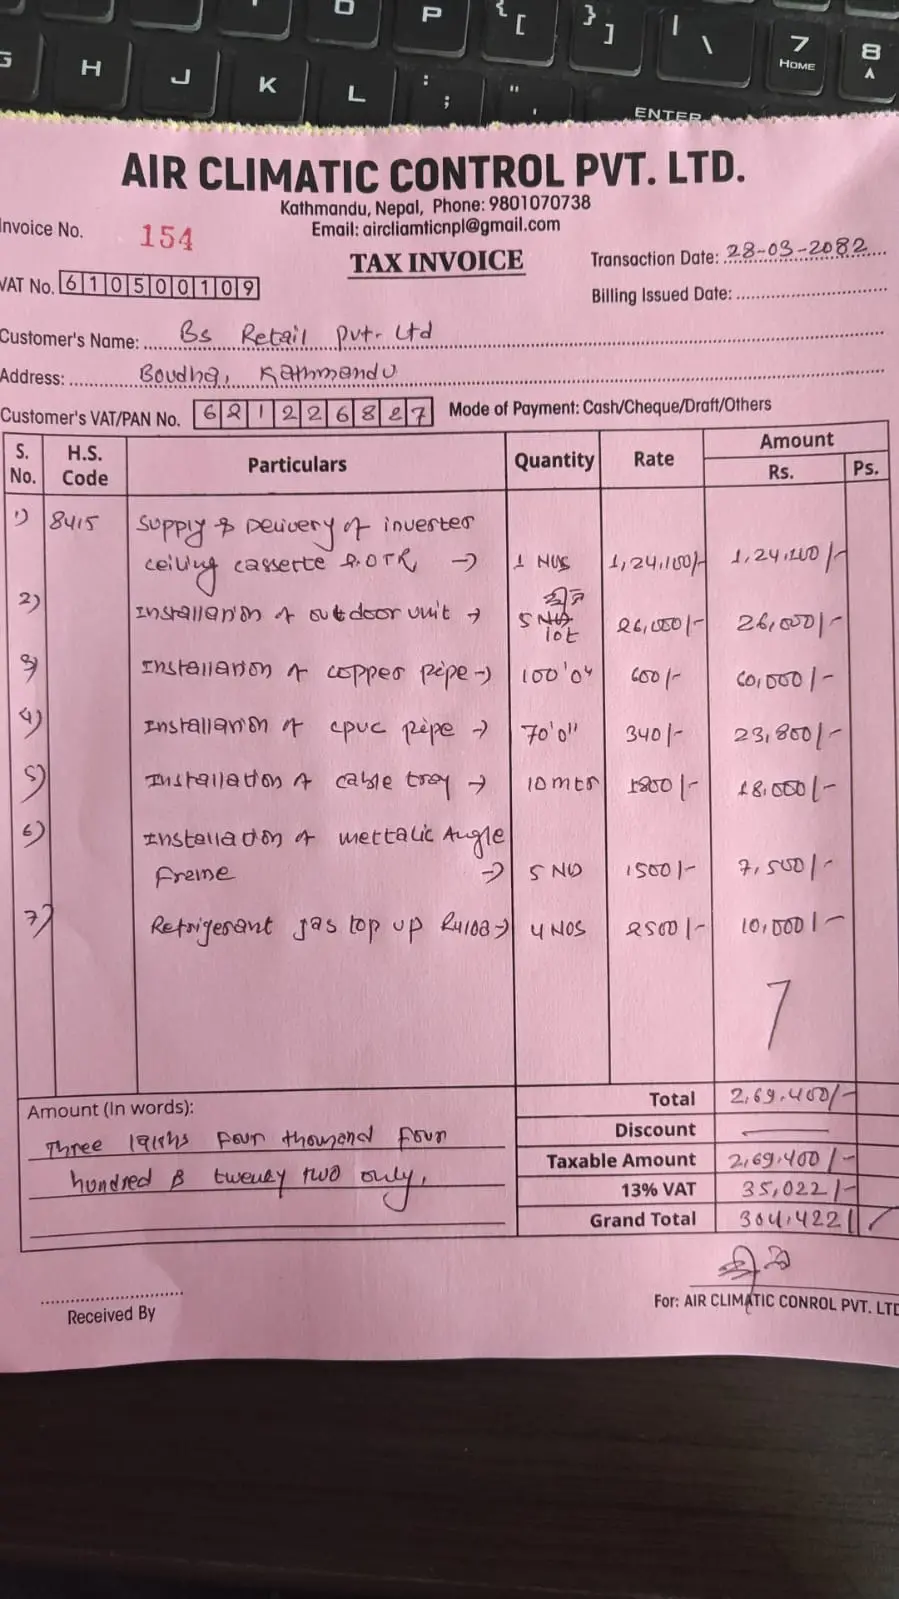 O P { [ } ] | \ 7 HOME 8
G H J K L : ; " ' ENTER
AIR CLIMATIC CONTROL PVT. LTD.
Kathmandu, Nepal, Phone: 9801070738
Email: aircliamticnpl@gmail.com
Invoice No. 154
TAX INVOICE
Transaction Date: 28-03-2082
VAT No. 610500109
Billing Issued Date:
Customer's Name: Bs Retail pvt. Ltd
Address: Boudha, Kathmandu
Customer's VAT/PAN No. 621226827 Mode of Payment: Cash/Cheque/Draft/Others
S. No. H.S. Code Particulars Quantity Rate Amount Rs. Ps.
1) 8415 Supply & Delivery of inverter
ceiling cassette 2.0TR → 1 NOS 1,24,100/- 1,24,100/-
2) Installation of outdoor unit → 5 lot 26,000/- 26,000/-
3) Installation of copper pipe → 100'0" 600/- 60,000/-
4) Installation of cpvc pipe → 70'0" 340/- 23,800/-
5) Installation of cable tray → 10 mtr 1800/- 18,000/-
6) Installation of mettalic Angle
freme → 5 NO 1500/- 7,500/-
7) Refrigerant gas top up R410a → 4 NOS 2500/- 10,000/-
Total 2,69,400/-
Amount (In words):
Discount
Three lakhs four thousand four
Taxable Amount 2,69,400/-
hundred & twenty two only.
13% VAT 35,022/-
Grand Total 304,422/-
Received By
For: AIR CLIMATIC CONROL PVT. LTD